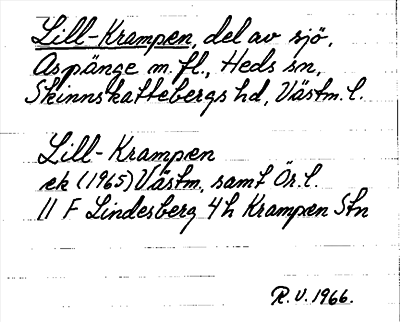 Lill-Krampen, del av sjö,
Aspänge m. fl., Heds sn,
Skinnskattebergs hd, Västm. l.
Lill-Krampen
ek (1965) Västm, samt Ör. l.
11 F Lindesberg 4h Krampen Stn
R.V. 1966.